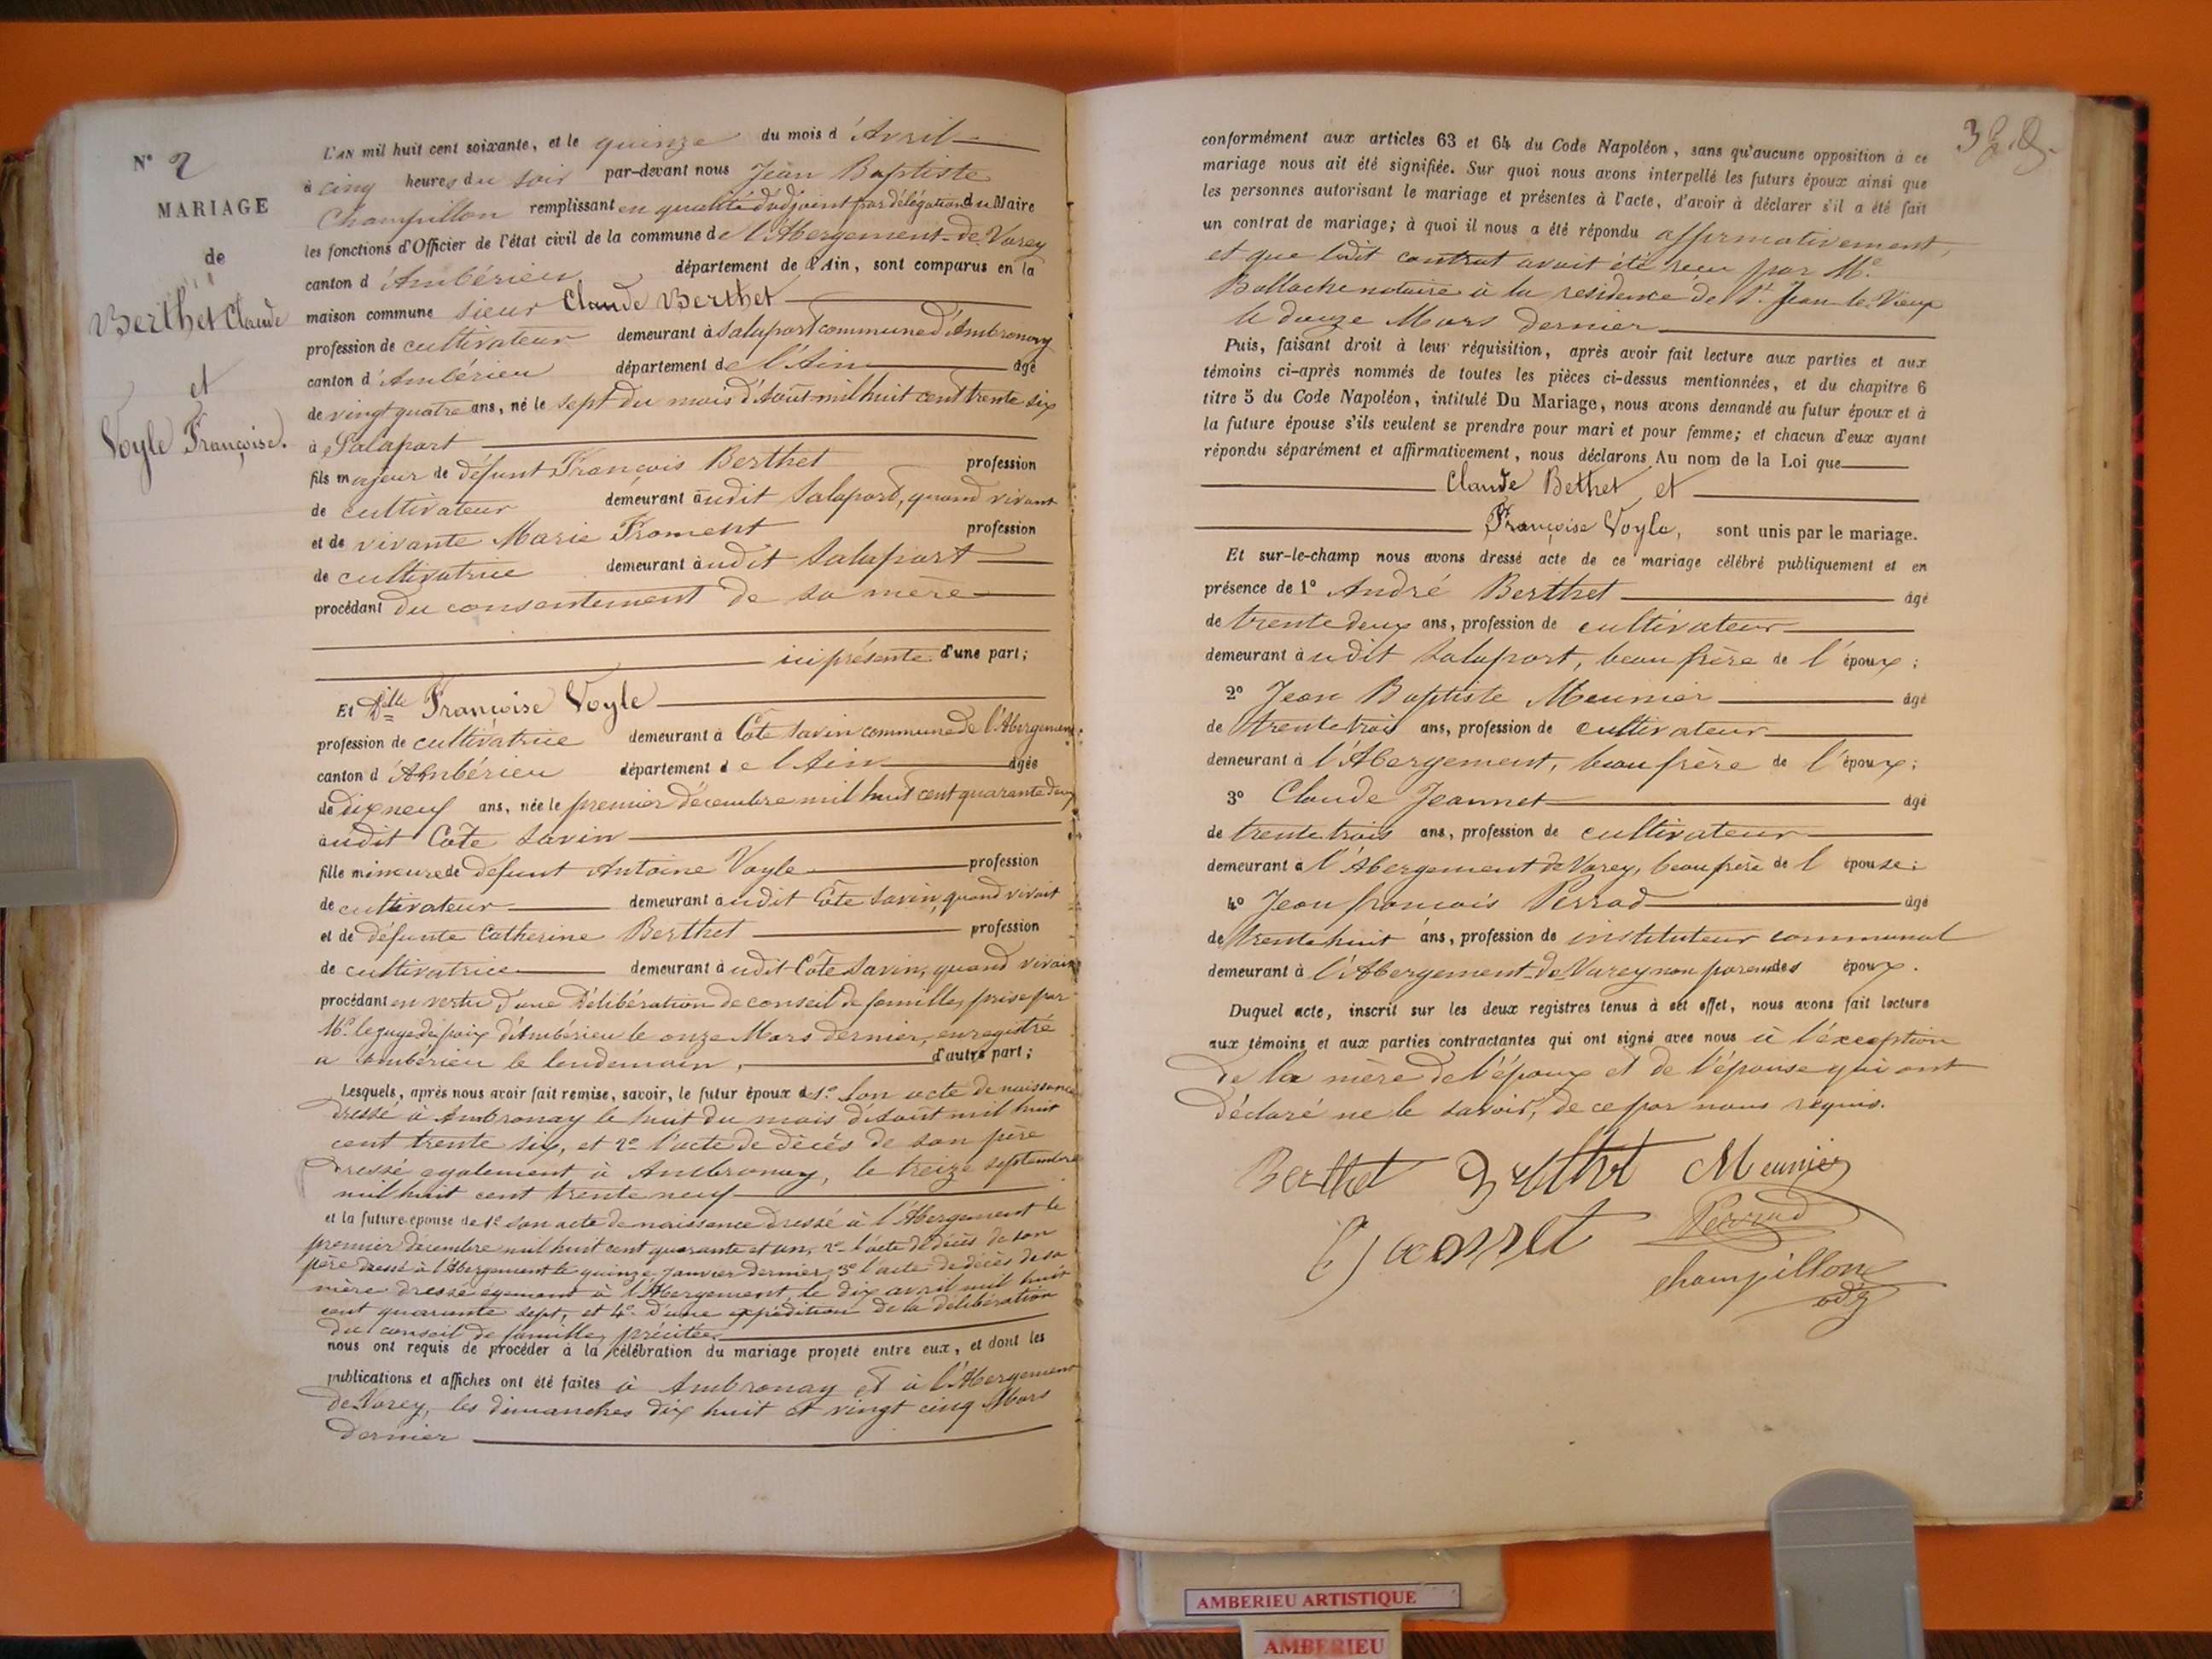 N° 2
MARIAGE
de
Berthet Claude
et
Voyle Françoise.
L'AN mil huit cent soixante, et le quinze du mois d'Avril
à cinq heures du soir par-devant nous Jean Baptiste
Champillon remplissant en qualité d'adjoint par délégation du Maire
les fonctions d'Officier de l'état civil de la commune de l'Abergement-de-Varey
canton d'Ambérieu département de l'Ain, sont comparus en la
maison commune sieur Claude Berthet
profession de cultivateur demeurant à Salaport commune d'Ambronay
canton d'Ambérieu département de l'Ain âgé
de vingt quatre ans, né le sept du mois d'Août mil huit cent trente six
à Salaport
fils majeur de défunt François Berthet profession
de cultivateur demeurant audit Salaport, quand vivant
et de vivante Marie Froment profession
de cultivatrice demeurant audit Salaport
procédant du consentement de sa mère
ici présente d'une part;
Et Dlle Françoise Voyle
profession de cultivatrice demeurant à Côte Savin commune de l'Abergement
canton d'Ambérieu département de l'Ain âgée
de dix neuf ans, née le premier décembre mil huit cent quarante deux
audit Côte Savin
fille mineure de défunt Antoine Voyle profession
de cultivateur demeurant audit Côte Savin, quand vivait
et de défunte Catherine Berthet profession
de cultivatrice demeurant audit Côte Savin, quand vivait
procédant en vertu d'une Délibération de conseil de famille, prise par
Mr. le juge de paix d'Ambérieu le onze Mars dernier, enregistré
a Ambérieu le lendemain, d'autre part;
Lesquels, après nous avoir fait remise, savoir, le futur époux de 1° son acte de naissance
dressé à Ambronay le huit du mois d'Août mil huit
cent trente six, et 2° l'acte de décés de son père
dressé egalement à Ambronay, le treize septembre
mil huit cent trente neuf
et la future épouse de 1° son acte de naissance dressé à l'Abergement le
premier décembre mil huit cent quarante et un, 2° l'acte de décès de son
père dressé à l'Abergement le quinze Janvier dernier, 3° l'acte de décès de sa
mère dressé égement à l'Abergement, le dix avril mil huit
cent quarante sept, et 4° d'une expédition de la délibération
du conseil de famille, précitée,
nous ont requis de procéder à la célébration du mariage projeté entre eux, et dont les
publications et affiches ont été faites à Ambronay et à l'Abergement
de Varey, les dimanches dix huit et vingt cinq Mars
dernier
conformément aux articles 63 et 64 du Code Napoléon, sans qu'aucune opposition à ce
mariage nous ait été signifiée. Sur quoi nous avons interpellé les futurs époux ainsi que
les personnes autorisant le mariage et présentes à l'acte, d'avoir à déclarer s'il a été fait
un contrat de mariage; à quoi il nous a été répondu affirmativement,
et que ledit contrat avait été reçu par Me.
notaire à la residence de St. Jean-le-Vieux
le douze Mars dernier
Puis, faisant droit à leur réquisition, après avoir fait lecture aux parties et aux
témoins ci-après nommés de toutes les pièces ci-dessus mentionnées, et du chapitre 6
titre 5 du Code Napoléon, intitulé Du Mariage, nous avons demandé au futur époux et à
la future épouse s'ils veulent se prendre pour mari et pour femme; et chacun d'eux ayant
répondu séparément et affirmativement, nous déclarons Au nom de la Loi que
Claude Bethet, et
Françoise Voyle, sont unis par le mariage.
Et sur-le-champ nous avons dressé acte de ce mariage célébré publiquement et en
présence de 1° André Berthet âgé
de trente deux ans, profession de cultivateur
demeurant audit Salaport, beau frère de l'époux;
2° Jean Baptiste Meunier âgé
de trente trois ans, profession de cultivateur
demeurant à l'Abergement, beau frère de l'époux;
3° Claude Jeannet âgé
de trente trois ans, profession de cultivateur
demeurant à l'Abergement de Varey, beau frère de l'épouse;
4° Jean françois Perrad âgé
de trente huit ans, profession de instituteur communal
demeurant à l'Abergement-de-Varey non parent des époux.
Duquel acte, inscrit sur les deux registres tenus à cet effet, nous avons fait lecture
aux témoins et aux parties contractantes qui ont signé avec nous à l'exception
de la mère de l'époux et de l'épouse qui ont
déclaré ne le savoir, de ce par nous requis.
Berthet Berthet Meunier
Perrad
Champillon
adj
AMBERIEU ARTISTIQUE
AMBERIEU